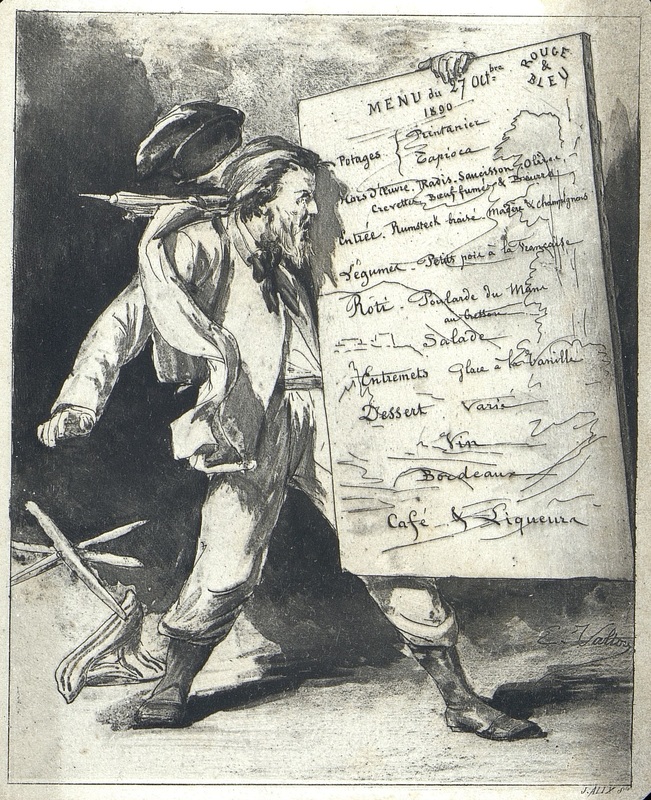 ROUGE
&
BLEU
MENU du 27 Octbre
1890
Potages { Printanier
Tapioca
Hors d'Œuvre. Radis. Saucisson. Olives
Crevettes, Bœuf fumé & Beurre
Entrée. Rumsteck braisé Madère & champignons
Légumes. Petits pois à la Française
Rôti. Poularde du Mans
au Cresson
Salade
Entremets Glace à la Vanille
Dessert Varié
Vin
Bordeaux
Café & Liqueurs
E. Valton
J. ALIX